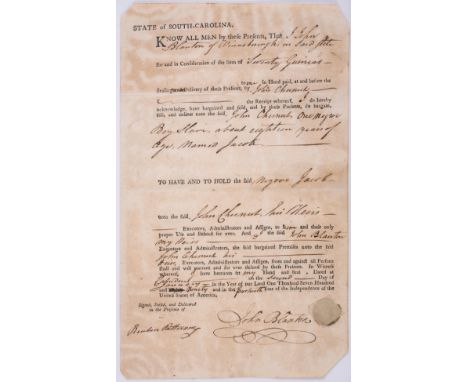 STATE of SOUTH-CAROLINA.
KNOW ALL MEN by these Presents, That I John
Blanton of Winnsborough in said State
for and in Consideration of the Sum of Seventy Guineas
to me in Hand paid, at and before the
Sealing and Delivery of these Presents, by John Chesnut
the Receipt whereof, I do hereby
acknowledge, have bargained and sold, and by these Presents, do bargain,
sell, and deliver unto the said, John Chesnut, One Negro
Boy Slave, about eighteen years of
Age, Named Jacob
TO HAVE AND TO HOLD the said, Negroe Jacob
unto the said, John Chesnut, his Heirs
Executors, Administrators and Assigns, to him and their only
proper Use and Behoof for ever. And I the said John Blanton
my Heirs
Executors and Administrators, the said bargained Premises unto the said
John Chesnut his
Heirs, Executors, Administrators and Assigns, from and against all Persons
shall and will warrant and for ever defend by these Presents. In Witness
whereof, I have hereunto set my Hand and Seal : Dated at
on the second Day of
in the Year of our Lord One Thousand Seven Hundred
and Ninety and in the fourteenth Year of the Independence of the
United States of America.
Signed, Sealed, and Delivered
in the Presence of
John Blanton